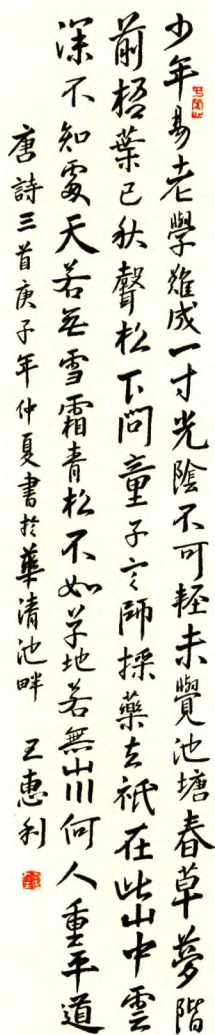 少年易老學難成一寸光陰不可輕未覺池塘春草夢階
前梧葉已秋聲松下問童子言師採藥去祇在此山中雲
深不知處天若無雪霜青松不如草地若無山川何人重平道
唐詩三首庚子年仲夏書於華清池畔 王惠利